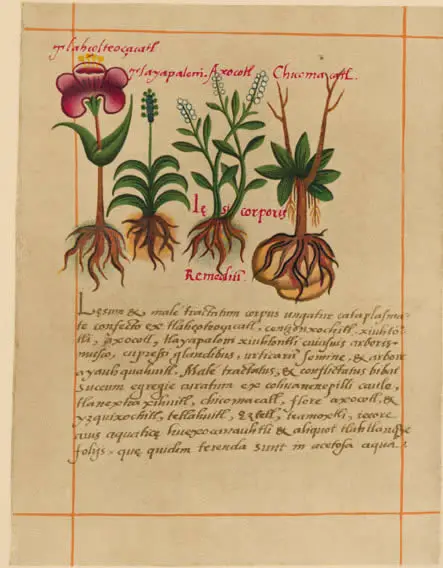 Tlahcolteoçacatl
Tlayapaloni. Axocotl. Chicomacatl.
Lę si corporis
Remediũ.
Lęsum & male tractatum corpus ungatur cataplasma-
te confecto ex tlahçolteoçacatl, centzonxochitl, xiuhton-
tli, axocotl, tlayapaloni xiuhtontli cuiusuis arboris
musco, cupressi glandibus, urticarũ semine, & arbore
ayauhquahuitl. Male tractatus, & conflictatus bibat
succum egregie curatum ex cohuanenepilli caule,
tlanextia xihuitl, chicomacatl, flore axocotl, &
yzquixochitl, tetlahuitl, eztetl, teamoxtli,
auis aquaticę huexocanauhtli & aliquot tlahtlanquaye
folijs, quę quidem terenda sunt in acetosa aqua.